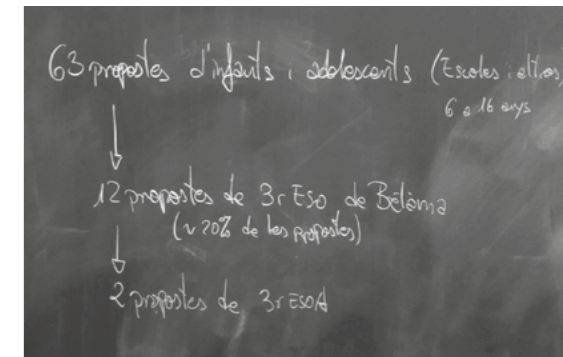 63 propostes d'infants i adolescents (Escoles i altres)
6 a 16 anys
12 propostes de 3r ESO de Betània
(~20% de les propostes)
2 propostes de 3r ESO A